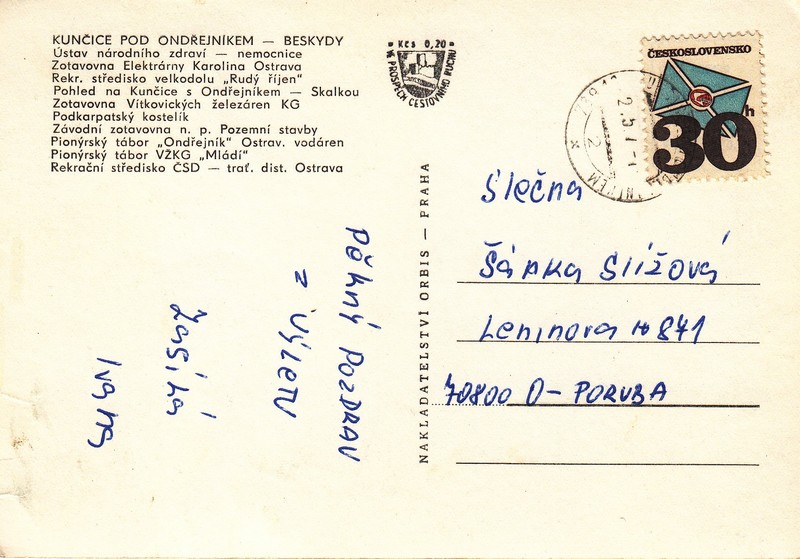 KUNČICE POD ONDŘEJNÍKEM — BESKYDY
Ústav národního zdraví — nemocnice
Zotavovna Elektrárny Karolina Ostrava
Rekr. středisko velkodolu „Rudý říjen"
Pohled na Kunčice s Ondřejníkem — Skalkou
Zotavovna Vítkovických železáren KG
Podkarpatský kostelík
Závodní zotavovna n. p. Pozemní stavby
Pionýrský tábor „Ondřejník" Ostrav. vodáren
Pionýrský tábor VŽKG „Mládí"
Rekrační středisko ČSD — trať. dist. Ostrava
Kčs 0,20
VE PROSPĚCH CESTOVNÍHO RUCHU
ČESKOSLOVENSKO
30h
NAKLADATELSTVÍ ORBIS — PRAHA
Pěkný POZDRAV
z VÝLETU
Zasílá
Ivana
Slečna
Šárka Slížová
Leninova 871
70800 O-PORUBA